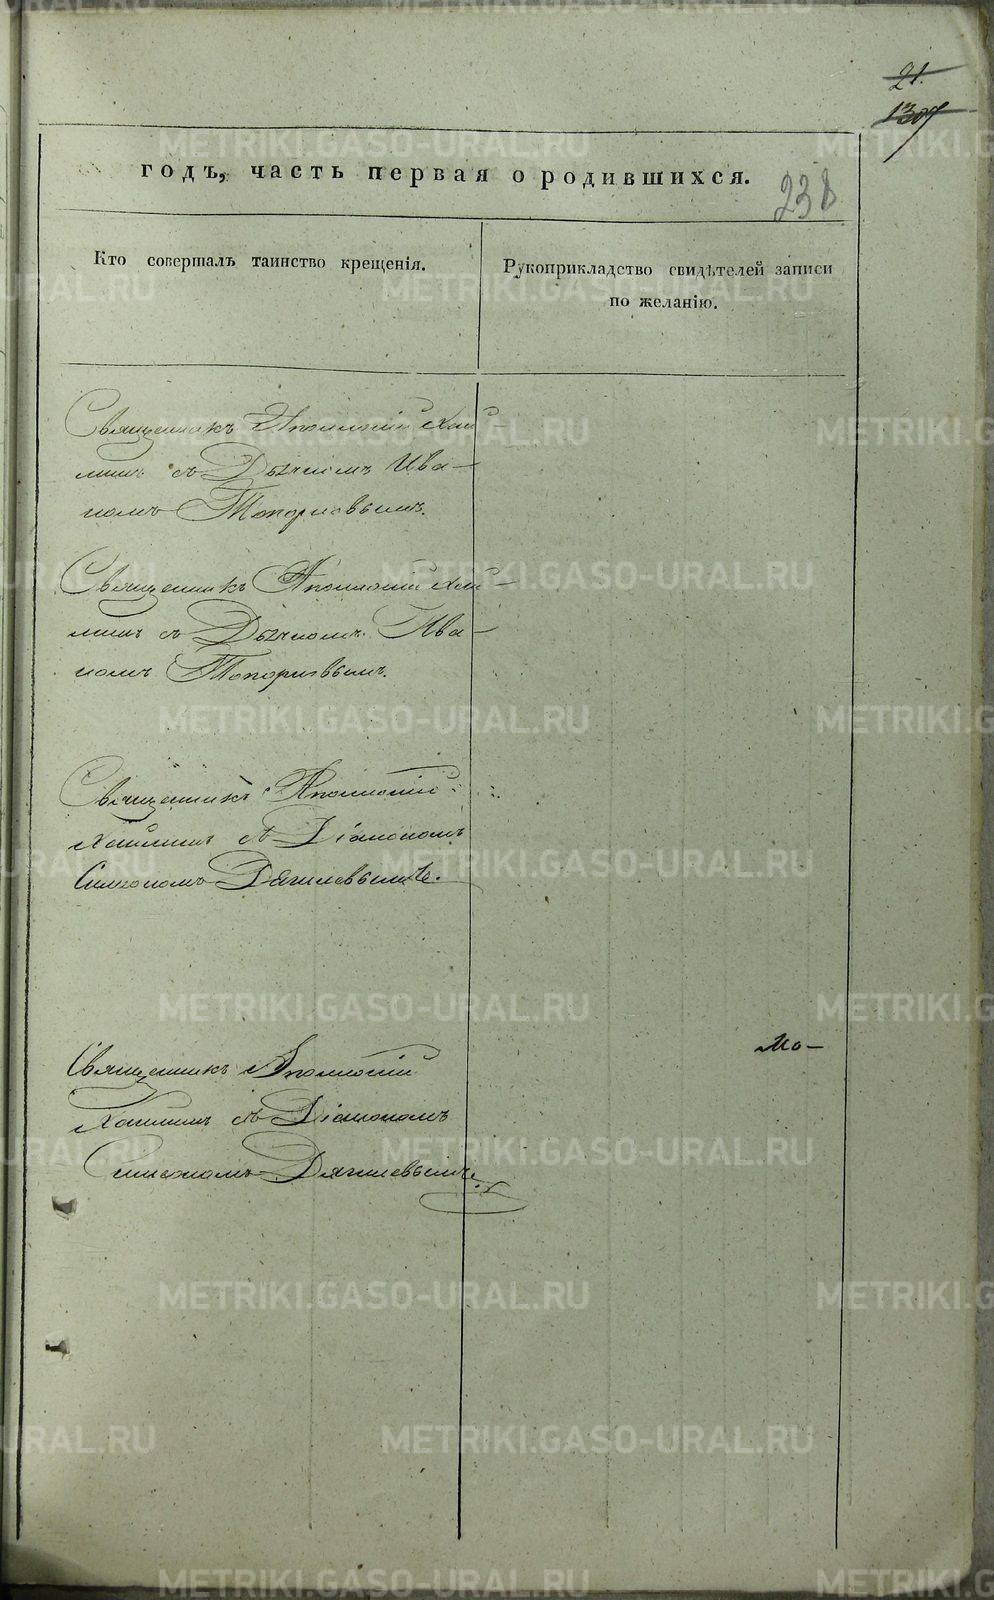 21.
1307
годъ, часть первая о родившихся.
238
Кто совершалъ таинство крещенія.
Рукоприкладство свидѣтелей записи
по желанію.
Священникъ Аполлоній
съ Дьячкомъ Ива-
номъ Топорковымъ.
Священникъ Аполлоній
съ Дьячкомъ Ива-
номъ Топорковымъ.
Священникъ Аполлоній
съ Діакономъ
Симеономъ Дягилевымъ.
Мо-
Священникъ Аполлоній
съ Діакономъ
Симеономъ Дягилевымъ.
METRIKI.GASO-URAL.RU